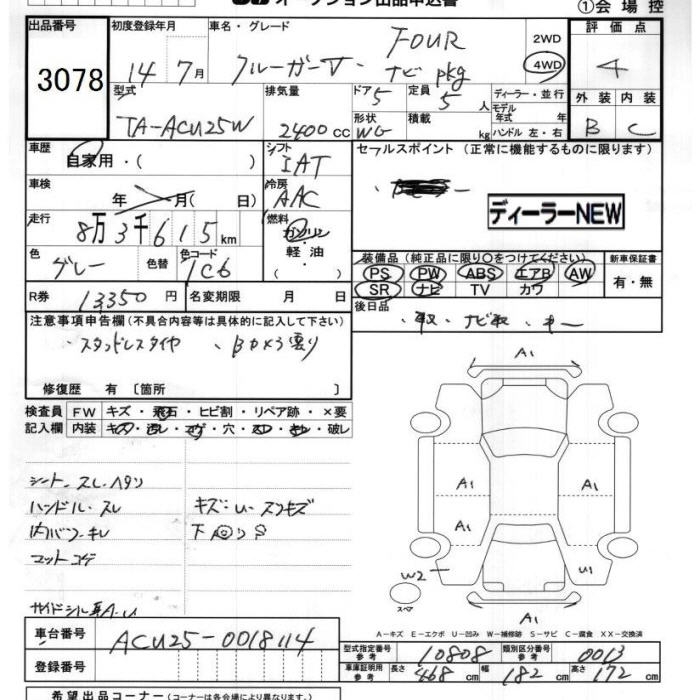 オークション出品申込書
①会場控
出品番号 初度登録年月 車名・グレード 2WD 評価点
3078 14年 7月 クルーガーV FOUR 4WD 4
ナビ pkg
型式 排気量 ドア 定員 ディーラー・並行 外装 内装
TA-ACU25W 2400cc 5 5人 モデル年式 年 B C
形状 積載 kg ハンドル 左・右
WG
車歴 シフト セールスポイント (正常に機能するものに限ります)
自家用・( ) IAT
車検 冷房
年 月( 日) AAC ディーラーNEW
走行 燃料
8万3千615km ガソリン・軽油・( )
装備品 (純正品に限り○をつけてください) 新車保証書
色 色替 色コード PS PW ABS エアB AW 有・無
グレー 1C6 SR ナビ TV カワ
R券 13350円 名変期限 月 日 後日品
・取 ・ナビ取 ・キー
注意事項申告欄 (不具合内容等は具体的に記入して下さい)
・スタッドレスタイヤ ・Bカメラ曇り
修復歴 有 〔箇所 〕
検査員 FW キズ・飛石・ヒビ割・リペア跡・×要
記入欄 内装 キズ・汚レ・コゲ・穴・スレ・キレ・破レ
A1
シート スレ ヘタリ
ハンドル・スレ キズ:U・スリキズ
内バリ・キレ 下回り
マットコゲ
A1 A1
A1
W2 U1
スペア
サイドシル A.U
A1
A-キズ E-エクボ U-凹み W-補修跡 S-サビ C-腐食 XX-交換済
車台番号 ACU25-0018114
型式指定番号 参考 10808 類別区分番号 参考 0013
登録番号
車庫証明用 参考 長さ 468cm 幅 182cm 高さ 172cm
希望出品コーナー (コーナーは各会場により異なります。)